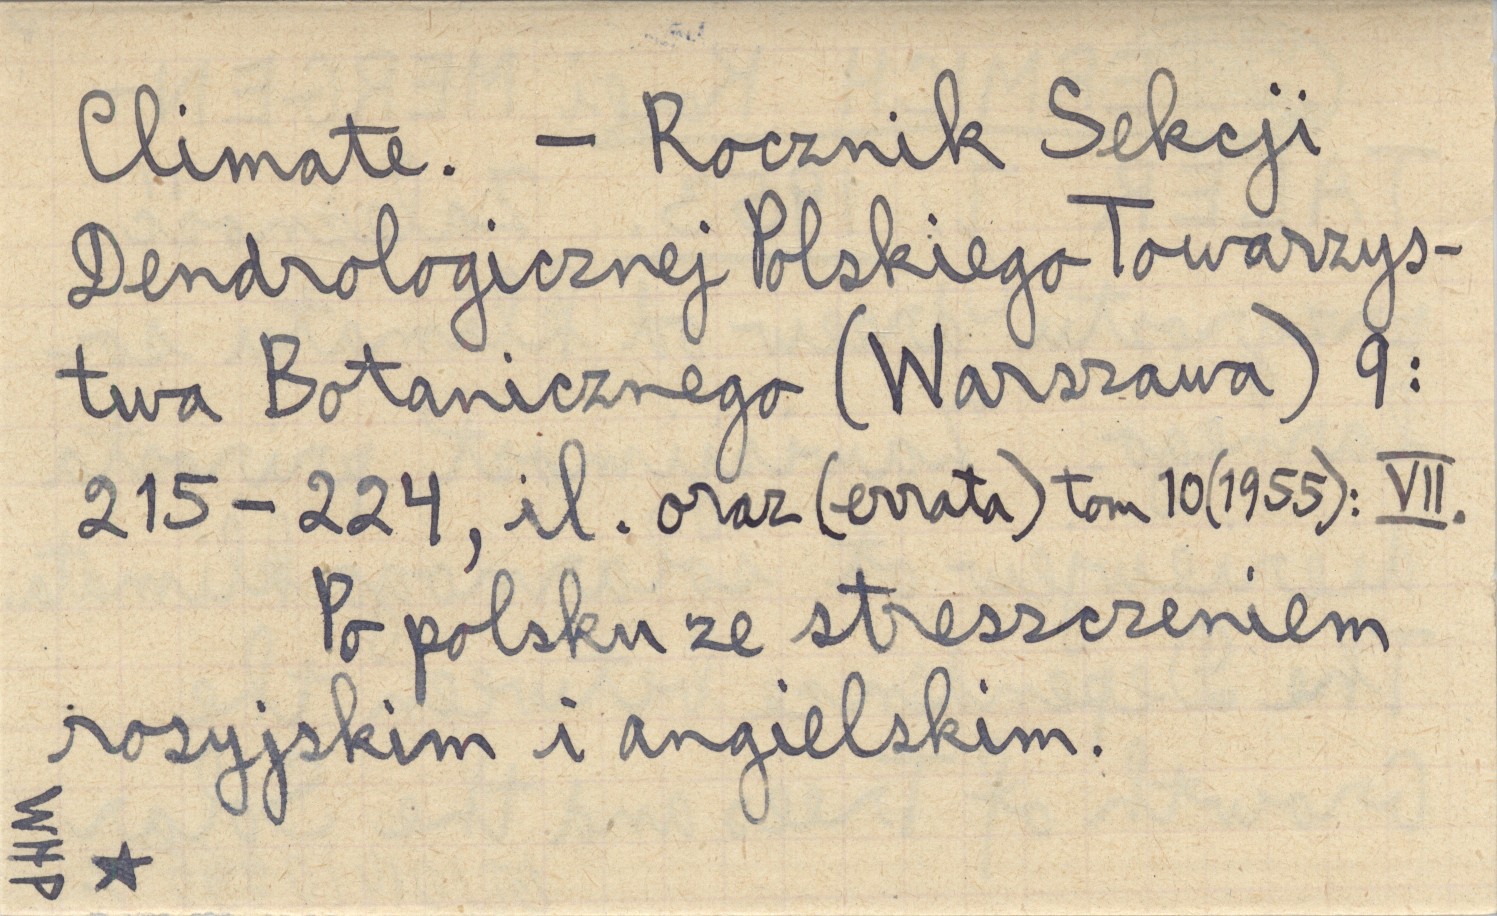 Climate. – Rocznik Sekcji
Dendrologicznej Polskiego Towarzys-
twa Botanicznego (Warszawa) 9:
215–224, il. oraz (errata) tom 10(1955): VII.
Po polsku ze streszczeniem
rosyjskim i angielskim.
WHP